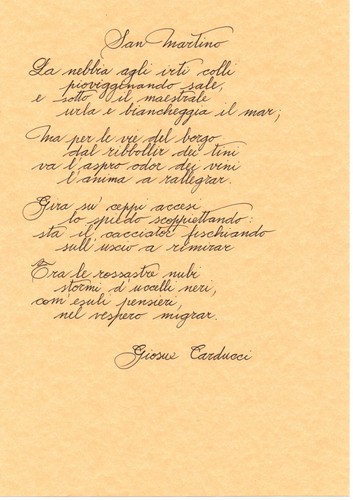 San Martino
La nebbia agli irti colli
piovigginando sale,
e sotto il maestrale
urla e biancheggia il mar;
Ma per le vie del borgo
dal ribollir dei tini
va l'aspro odor dei vini
l'anima a rallegrar.
Gira su' ceppi accesi
lo spiedo scoppiettando:
sta il cacciator fischiando
sull'uscio a rimirar
Tra le rossastre nubi
stormi d'uccelli neri,
com'esuli pensieri,
nel vespero migrar.
Giosue Carducci